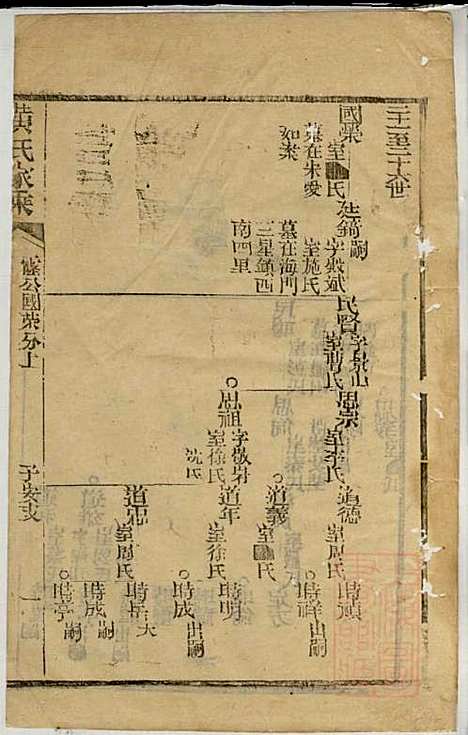 三十一至三十六世
國榮
室氏
墓在朱愛
如案
廷錡嗣
字毅斌
室施氏
墓在海門
三星鎮西
南四里
民賢
字景山
室曹氏
思崇
室李氏
思祖
字敬尉
室徐氏
沈氏
道德
室周氏
道義
室氏
道年
室徐氏
道忠
室周氏
時禎
時祥出嗣
時明
時成出嗣
時岳大
時成嗣
時亭嗣
黃氏家乘
公國榮分上
子安支
一